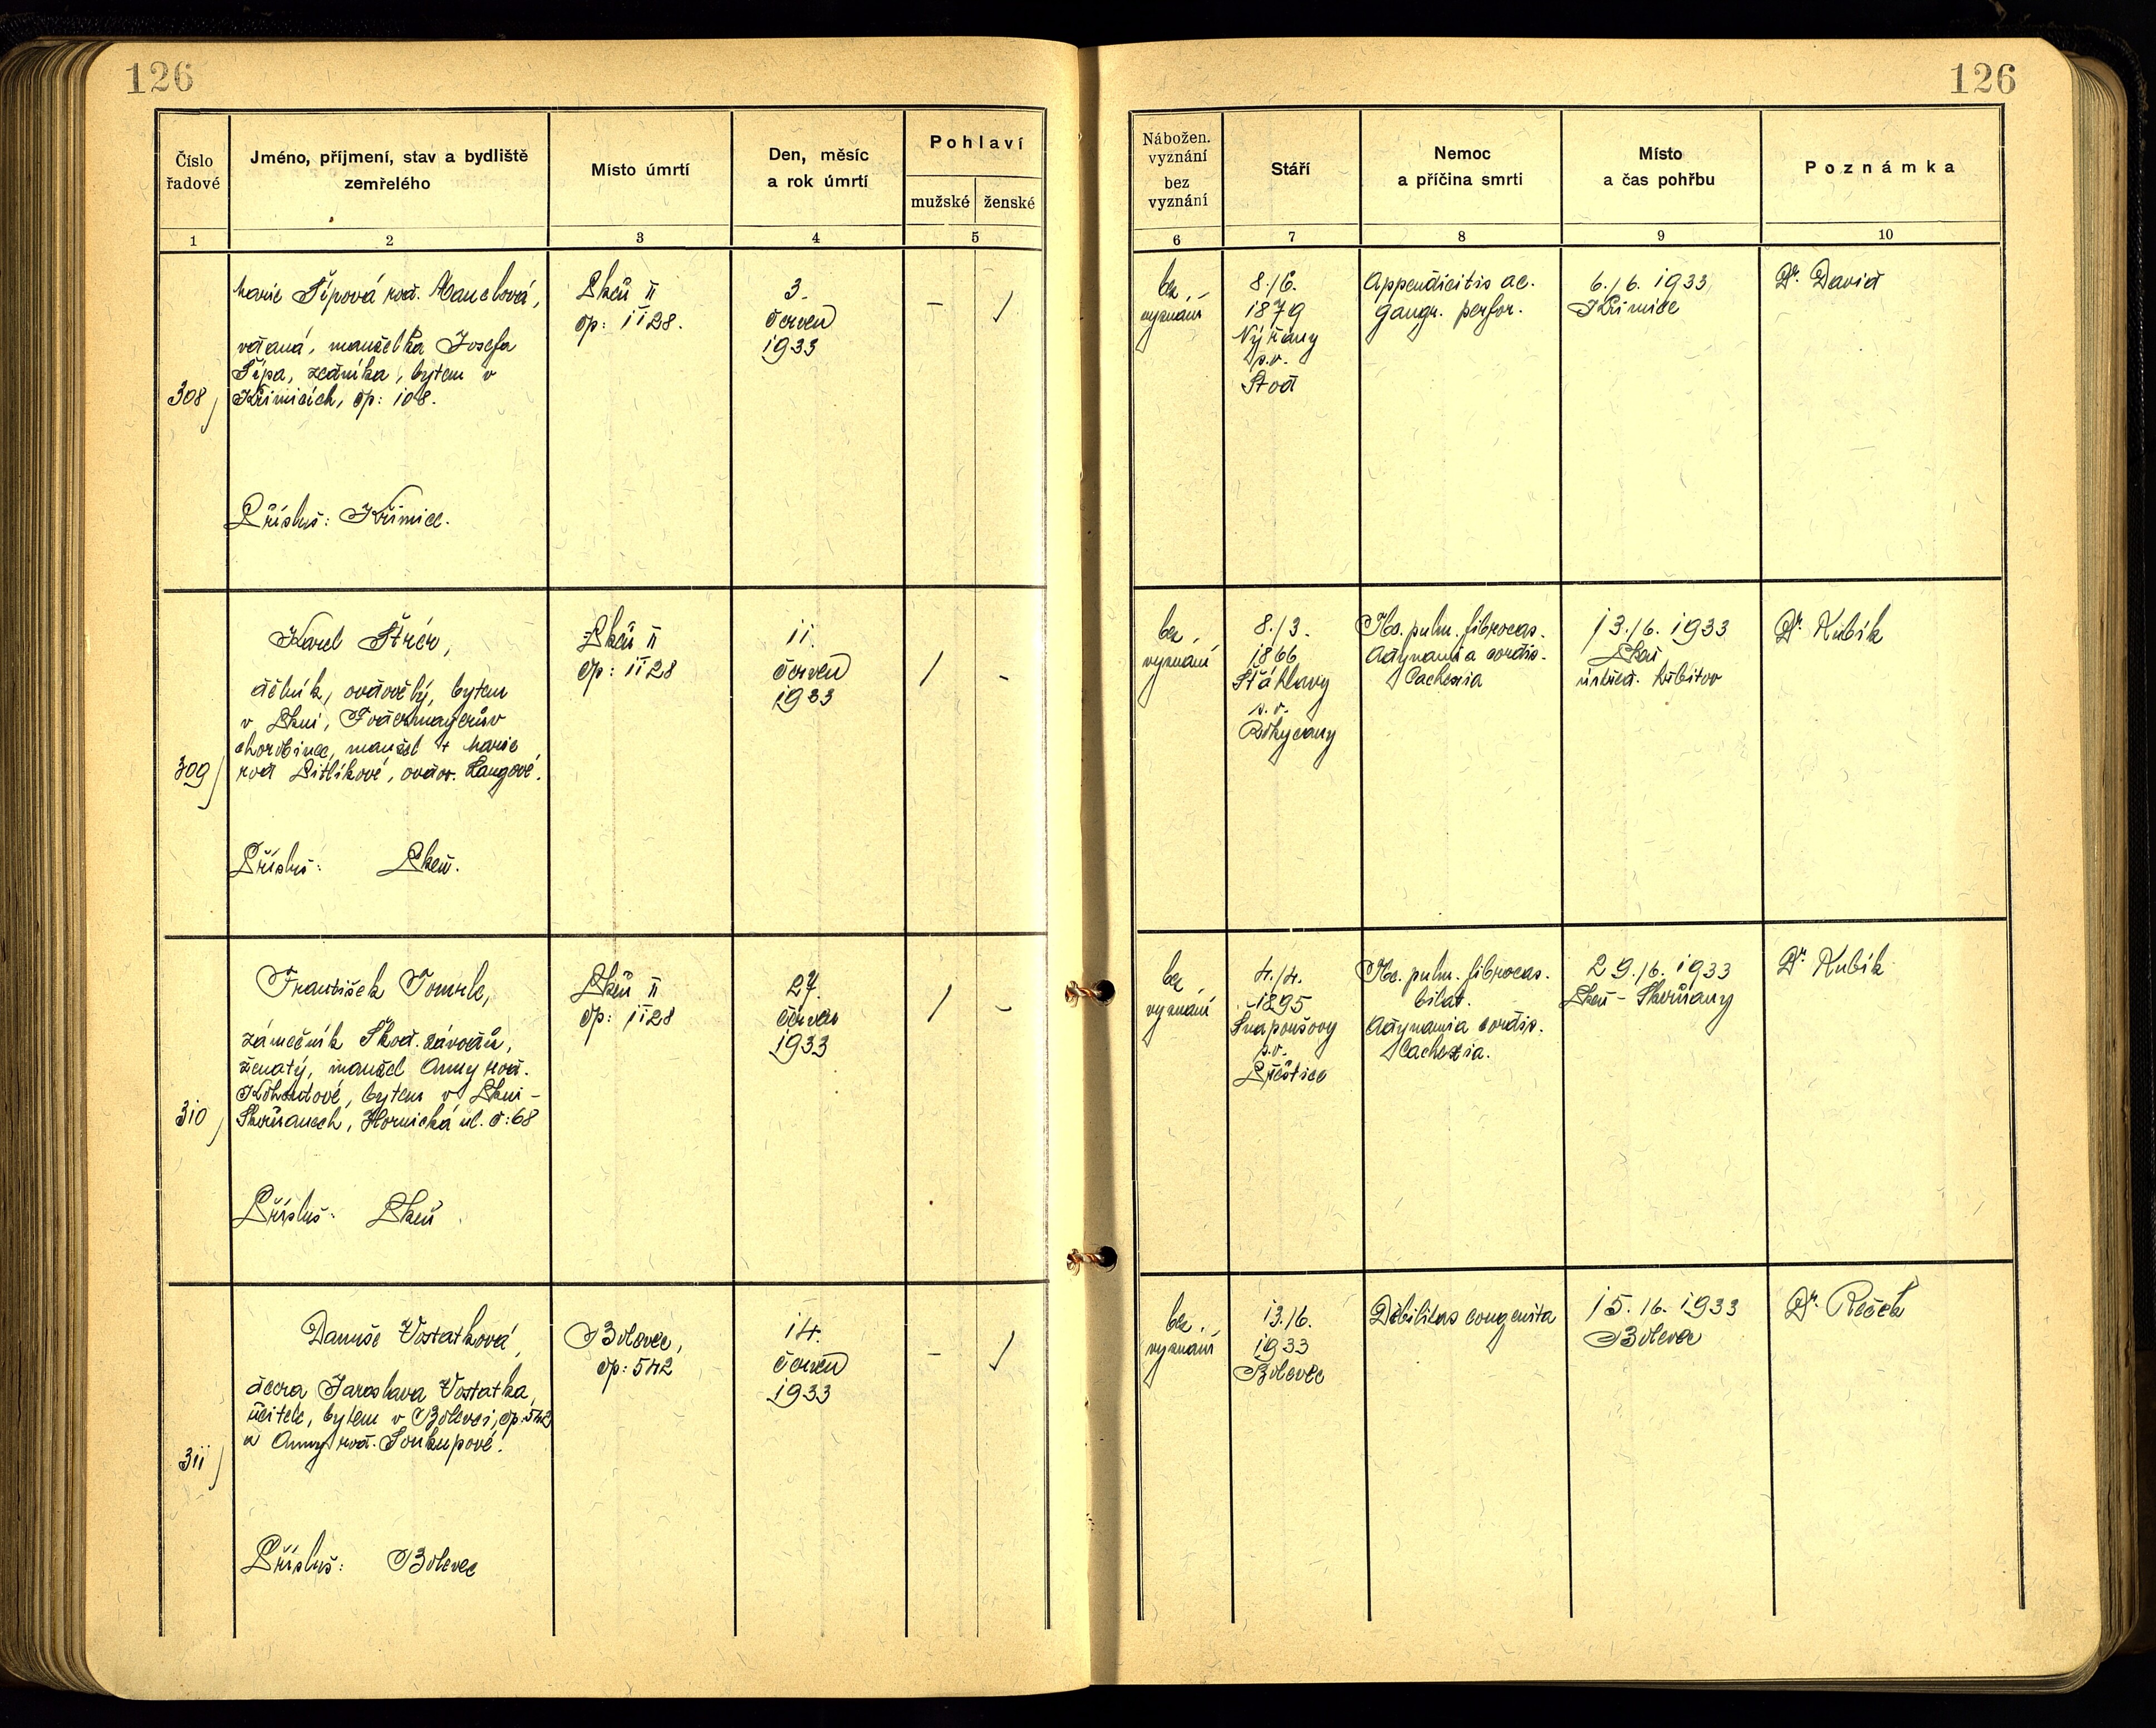 126
126
Číslo
řadové
Jméno, příjmení, stav a bydliště
zemřelého
Místo úmrtí
Den, měsíc
a rok úmrtí
Pohlaví
mužské
ženské
1
2
3
4
5
Nábožen.
vyznání
bez
vyznání
Stáří
Nemoc
a příčina smrti
Místo
a čas pohřbu
Poznámka
6
7
8
9
10
308
Marie Šípová roz.
vdaná, manželka Josefa
Šípa, zedníka, bytem v
Křimicích, čp: 108.
Přísluš: Křimice.
Plzeň II
čp: 1128.
3.
červen
1933
-
/
bez
vyznání
8./6.
1879
Nýřany
s.o.
Stod
Appendicitis ac.
gangr. perfor.
6./6. 1933
Křimice
Dr. David
309
Karel
dělník, ovdovělý, bytem
v Plzni,
chorobinec, manžel + Marie
rod. ovdov. Langové.
Přísluš: Plzeň.
Plzeň II
čp: 1128
11.
červen
1933
/
-
bez
vyznání
8./3.
1866
Šťáhlavy
s.o.
Rokycany
Tbc. pulm. fibrocas.
Adynamia cordis.
Cachexia
13./6. 1933
Plzeň
ústřed. hřbitov
Dr. Kubík
310
František
zámečník Škod. závodů,
ženatý, manžel Anny roz.
Kohoutové, bytem v Plzni-
Skvrňanech, Hornická ul. č: 68
Přísluš: Plzeň
Plzeň II
čp: 1128
27.
červen
1933
/
-
bez
vyznání
4./4.
1895
Snopoušovy
s.o.
Přeštice
Tbc. pulm. fibrocas.
bilat.
Adynamia cordis.
Cachexia.
29./6. 1933
Plzeň - Skvrňany
Dr. Kubík
311
Danuše Vostatková,
dcera Jaroslava Vostatka,
učitele, bytem v Bolevci, čp: 542
a Anny roz. Soukupové.
Přísluš: Bolevec
Bolevec,
čp: 542
14.
červen
1933
-
/
bez
vyznání
13./6.
1933
Bolevec
Debilitas congenita
15./6. 1933
Bolevec
Dr.